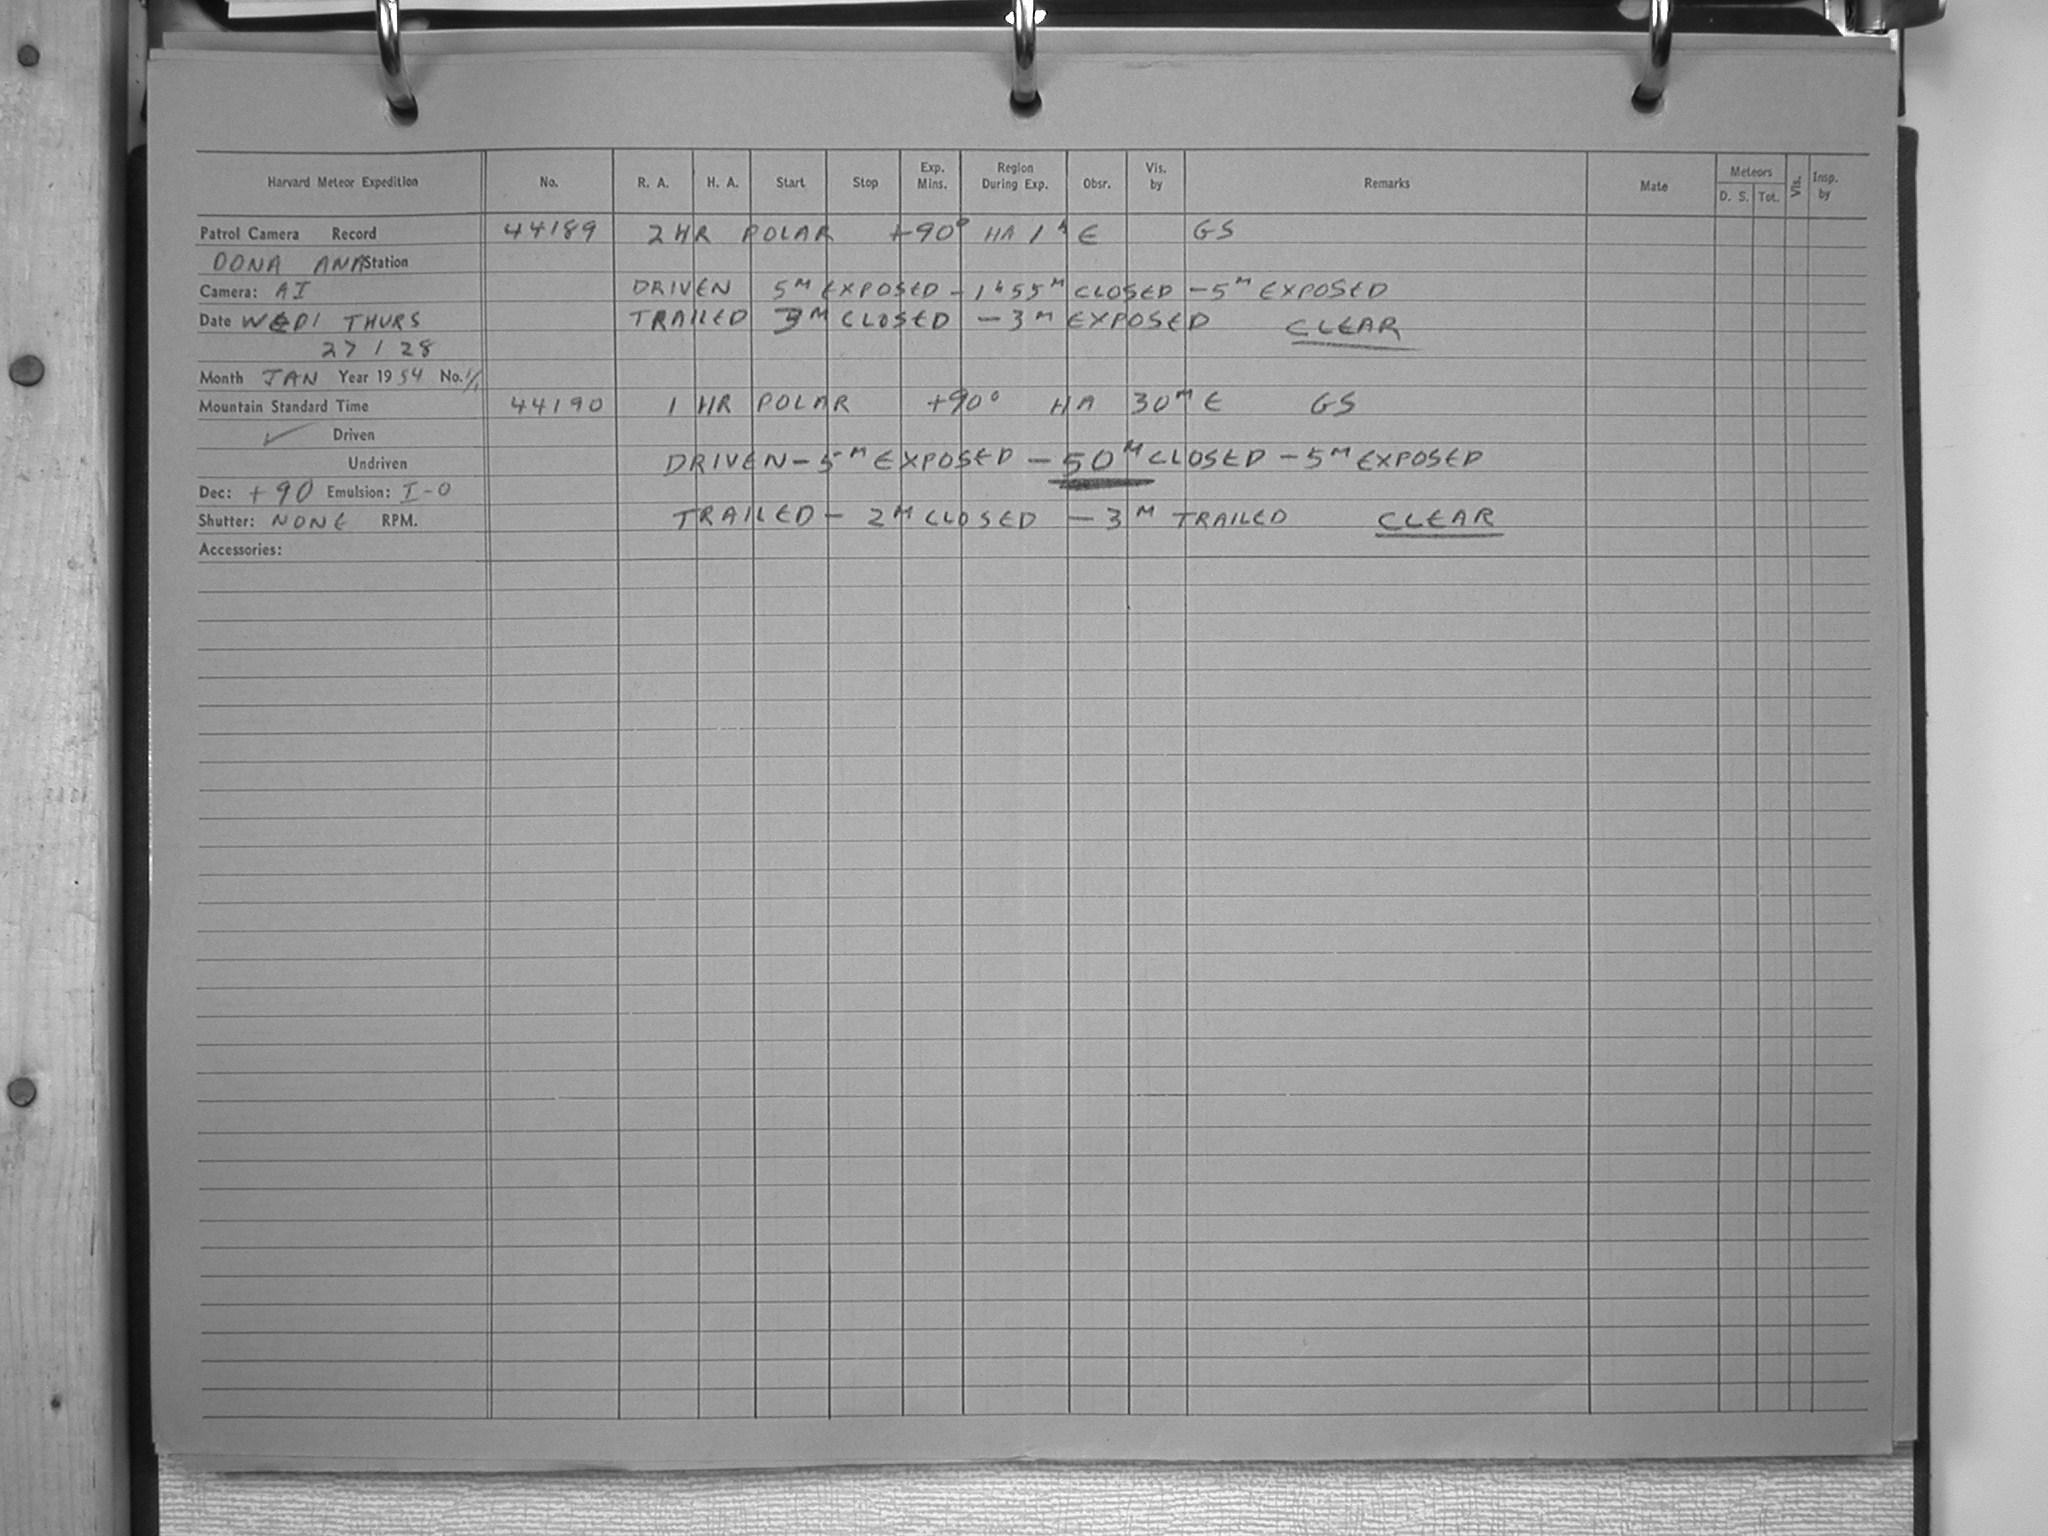 Harvard Meteor Expedition No. R. A. H. A. Start Stop Exp. Mins. Region During Exp. Obsr. Vis. by Remarks Mate Meteors D. S. Tot. Vis. Insp. by
Patrol Camera Record 44189 2 HR POLAR +90° HA 1ʰ E GS
DONA ANA Station
Camera: AI DRIVEN 5ᴹ EXPOSED - 1ʰ 55ᴹ CLOSED - 5ᴹ EXPOSED
Date WED/ THURS TRAILED 3ᴹ CLOSED - 3ᴹ EXPOSED CLEAR
27 / 28
Month JAN Year 1954 No. 1/1
Mountain Standard Time 44190 1 HR POLAR +90° HA 30ᴹ E GS
✓ Driven
Undriven DRIVEN - 5ᴹ EXPOSED - 50ᴹ CLOSED - 5ᴹ EXPOSED
Dec: +90 Emulsion: I-O
Shutter: NONE RPM. TRAILED - 2ᴹ CLOSED - 3ᴹ TRAILED CLEAR
Accessories: